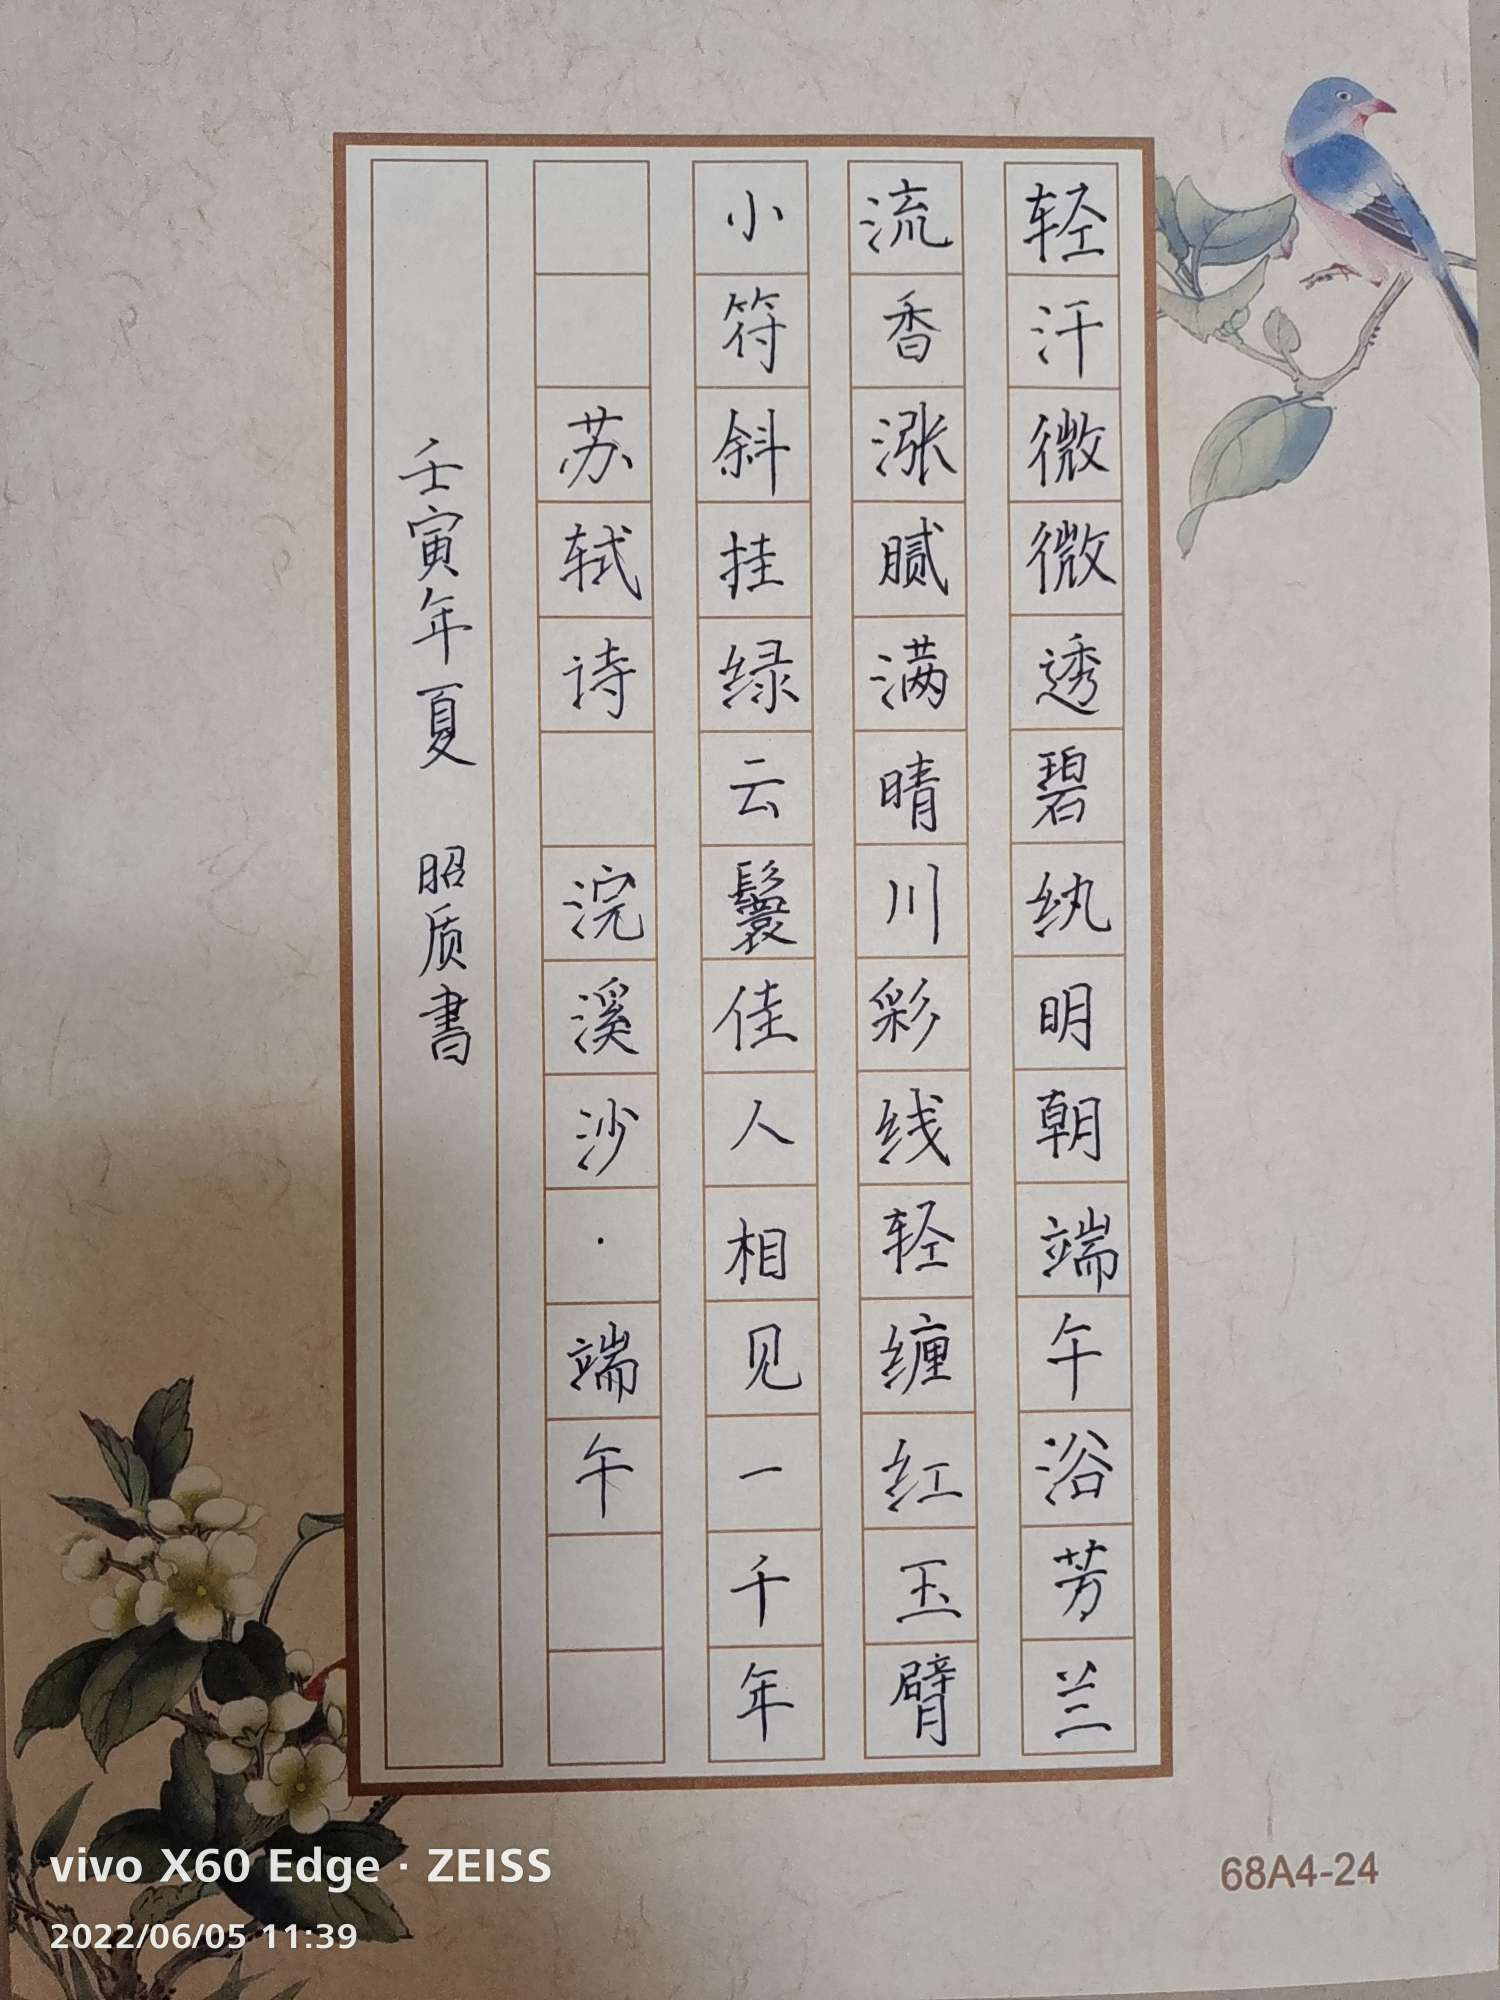 轻汗微微透碧纨明朝端午浴芳兰
流香涨腻满晴川彩线轻缠红玉臂
小符斜挂绿云鬟佳人相见一千年
苏轼诗 浣溪沙·端午
壬寅年夏 昭质書
68A4-24
vivo X60 Edge · ZEISS
2022/06/05 11:39